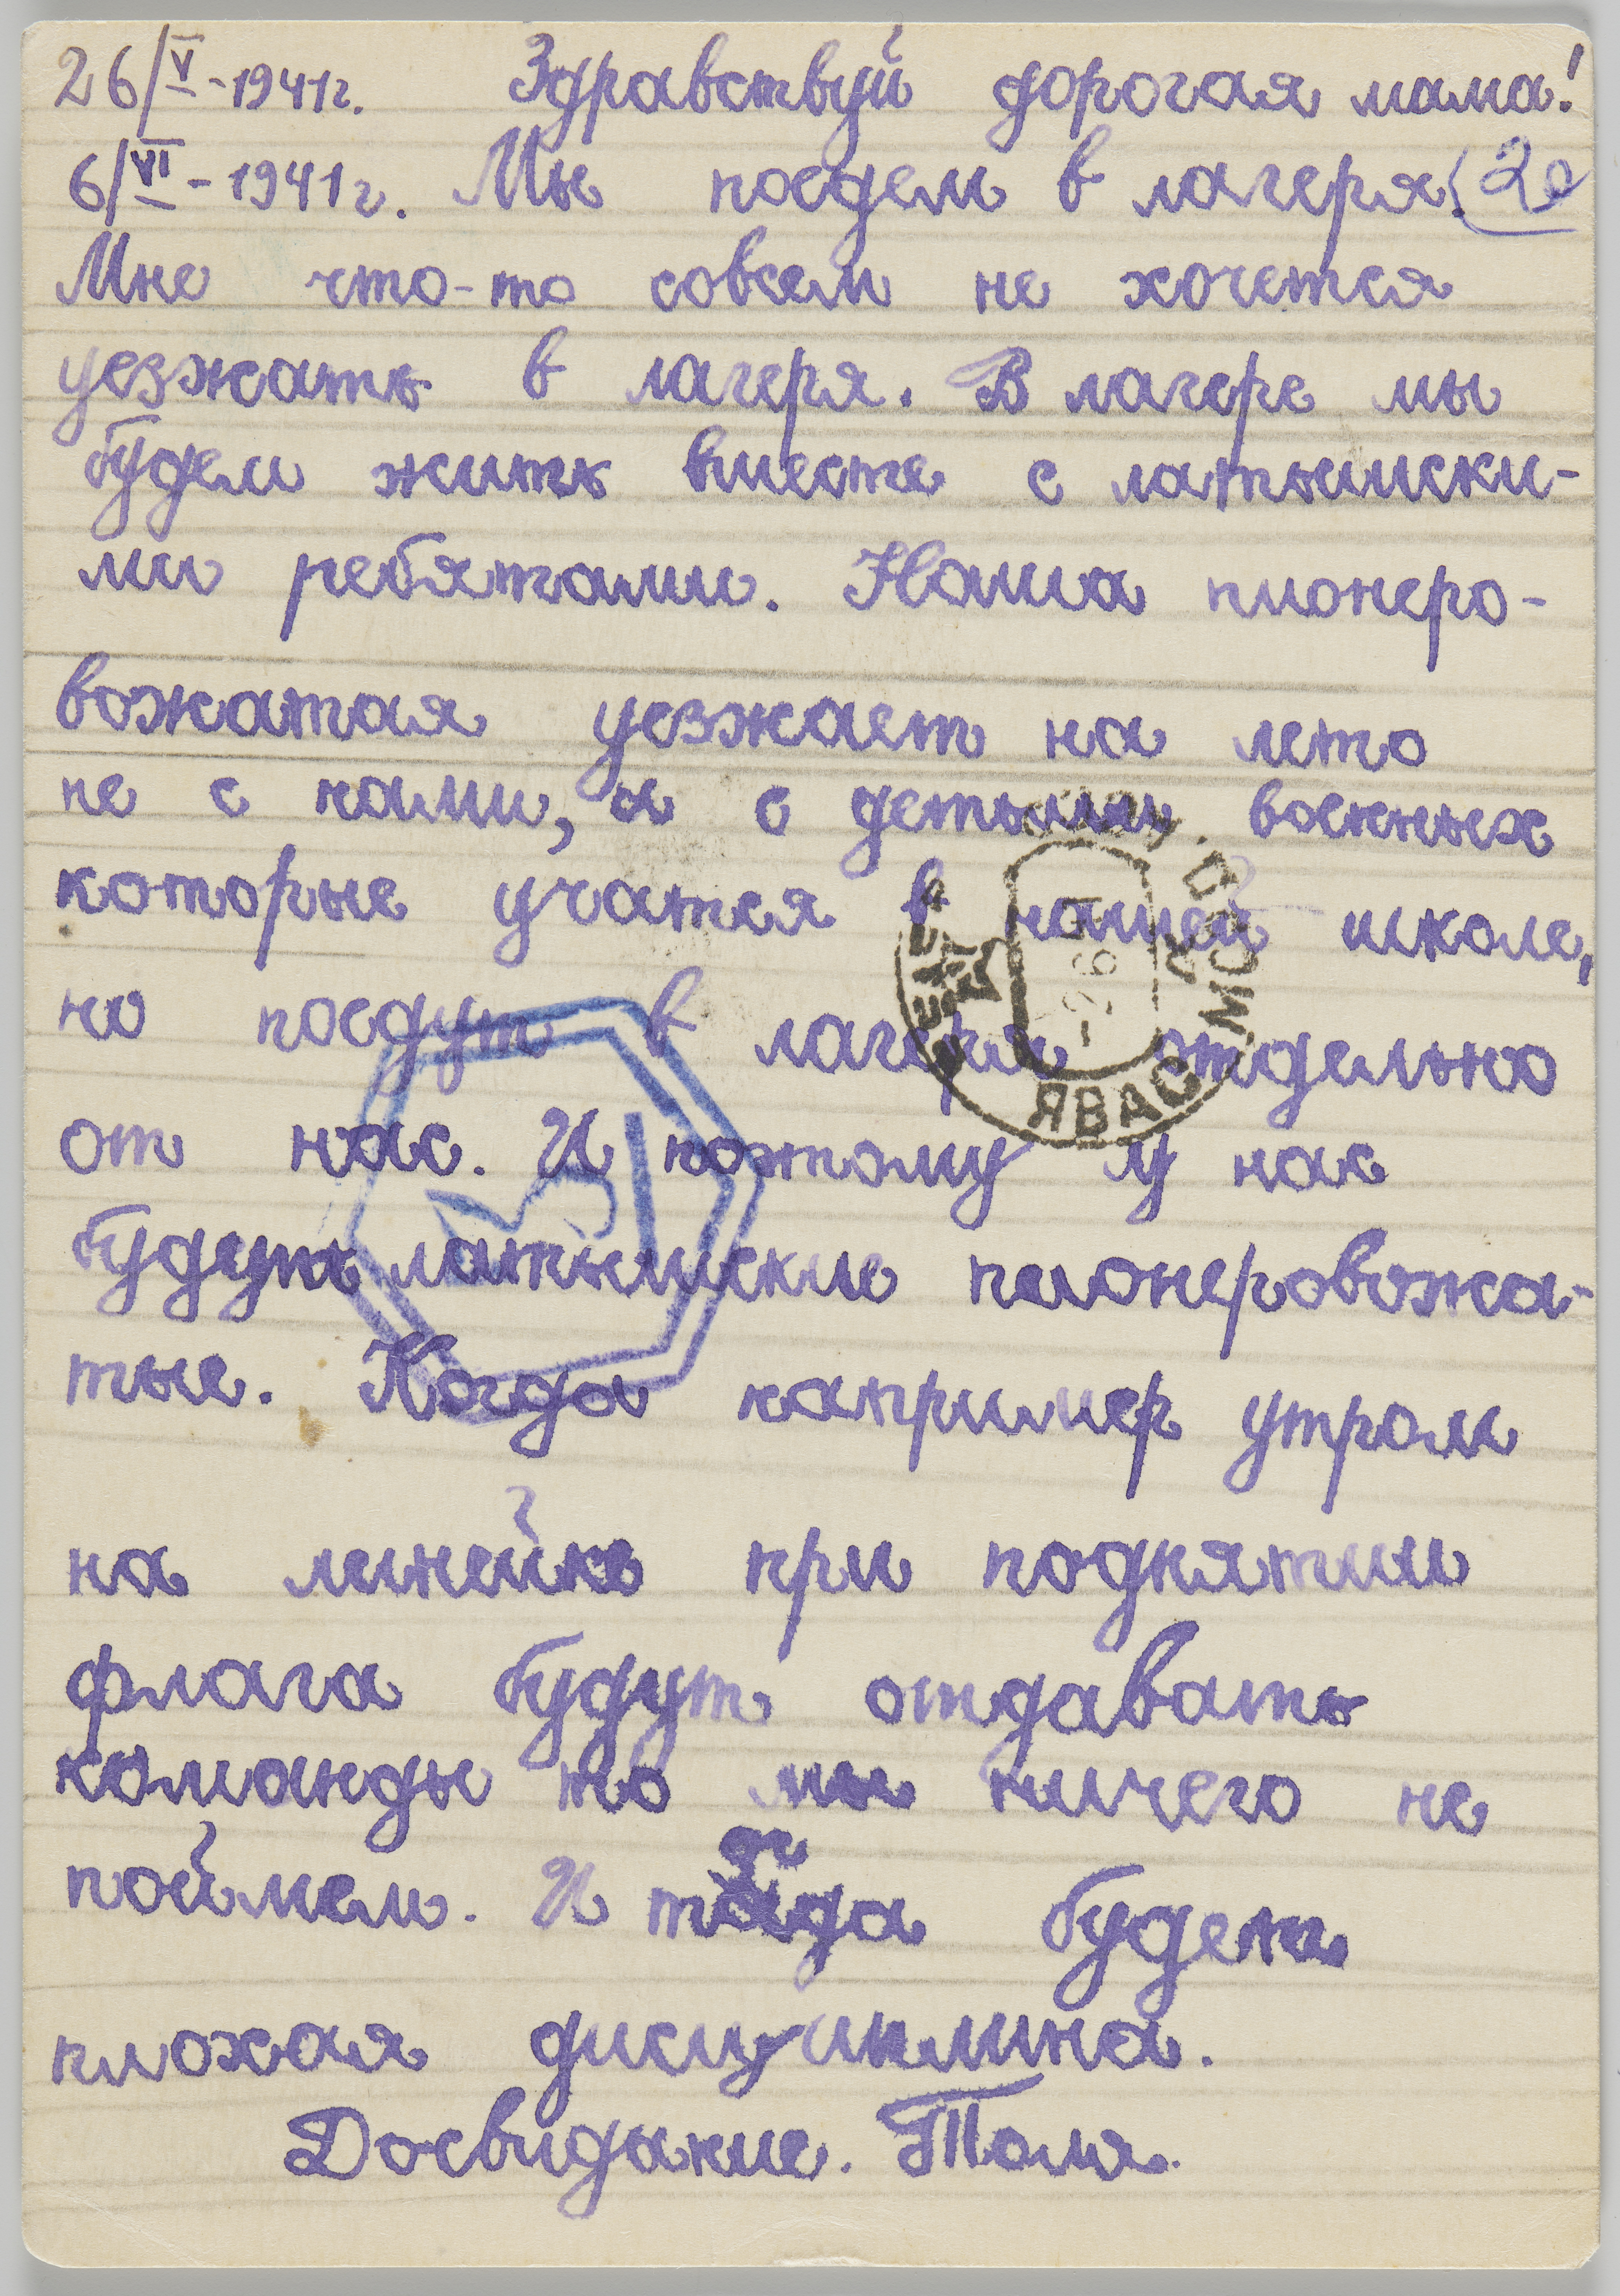 26/V-1941г. Здравствуй дорогая мама!
6/VI-1941г. Мы поедем в лагеря. 20
Мне что-то совсем не хочется
уезжать в лагеря. В лагере мы
будем жить вместе с латышски-
ми ребятами. Наша пионеро-
вожатая уезжает на лето
не с нами, а с детьми военных
которые учатся в нашей школе,
но поедут в лагеря отдельно
от нас. И поэтому у нас
будут латышские пионеровожа-
тые. Когда например утром
на линейке при поднятии
флага будут отдавать
команды то мы ничего не
поймем. И тогда будет
плохая дисциплина.
Досвидание. Толя.
ЯВАС МОРД.